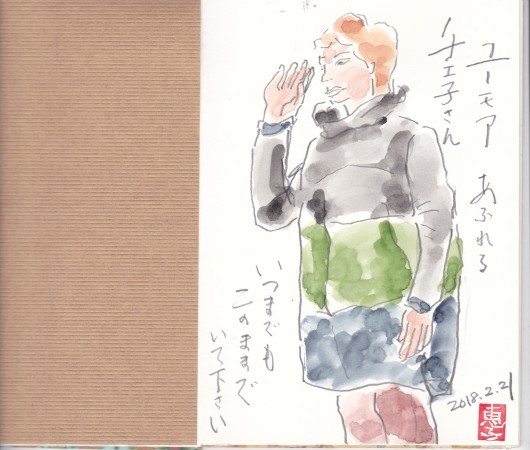 ユーモア あふれる
チエ子さん
いつまでも
このままで
いて下さい
2018.2.21
恵子